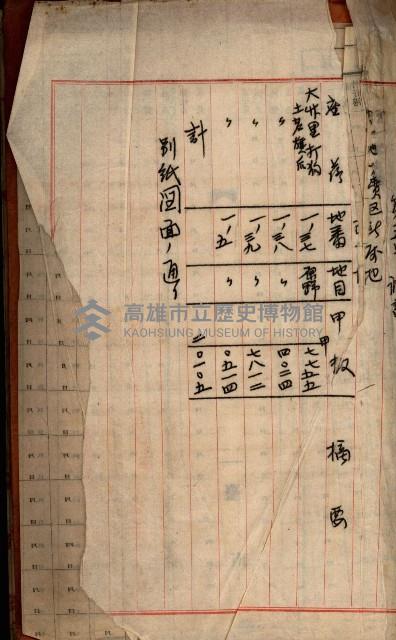 座落 地番 地目 甲数 摘要
大竹里打狗土名旗后 一ノ三七 原野 甲七七五五
〃 一ノ三八 〃 四〇二四
〃 一ノ三九 〃 七八一二
〃 一ノ五 〃 〇五一四
計 二〇一〇五
別紙図面ノ通リ
高雄市立歷史博物館
KAOHSIUNG MUSEUM OF HISTORY